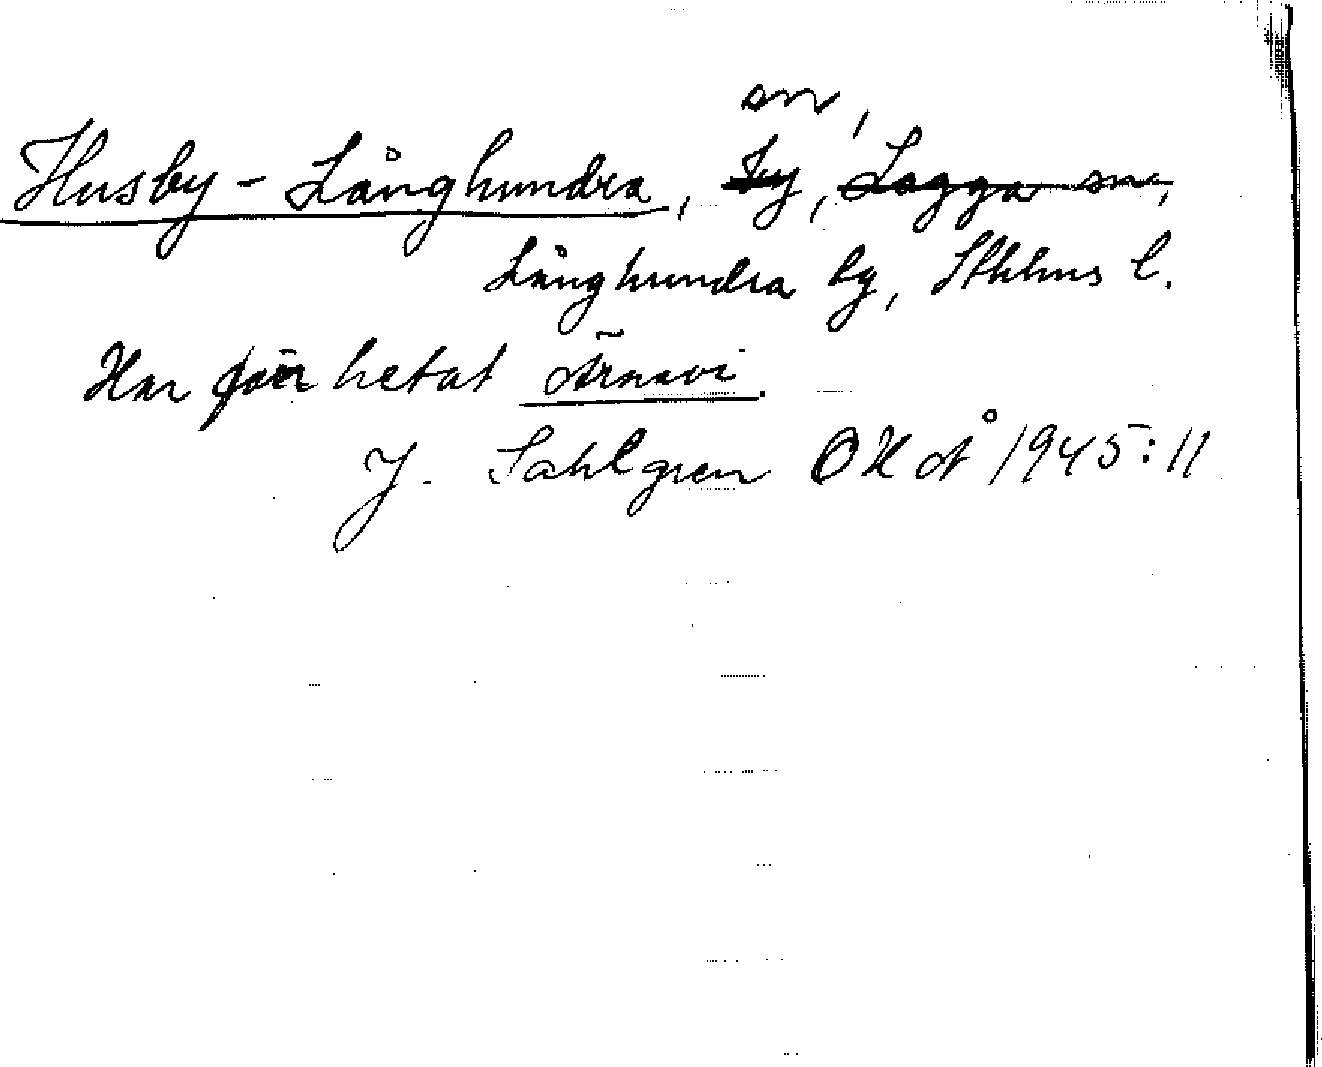 sn,
Husby-Långhundra, by, Lagga sn,
Långhundra by, Sthlms l.
Har förr hetat Ärnavi.
J. Sahlgren OKÅ 1945:11